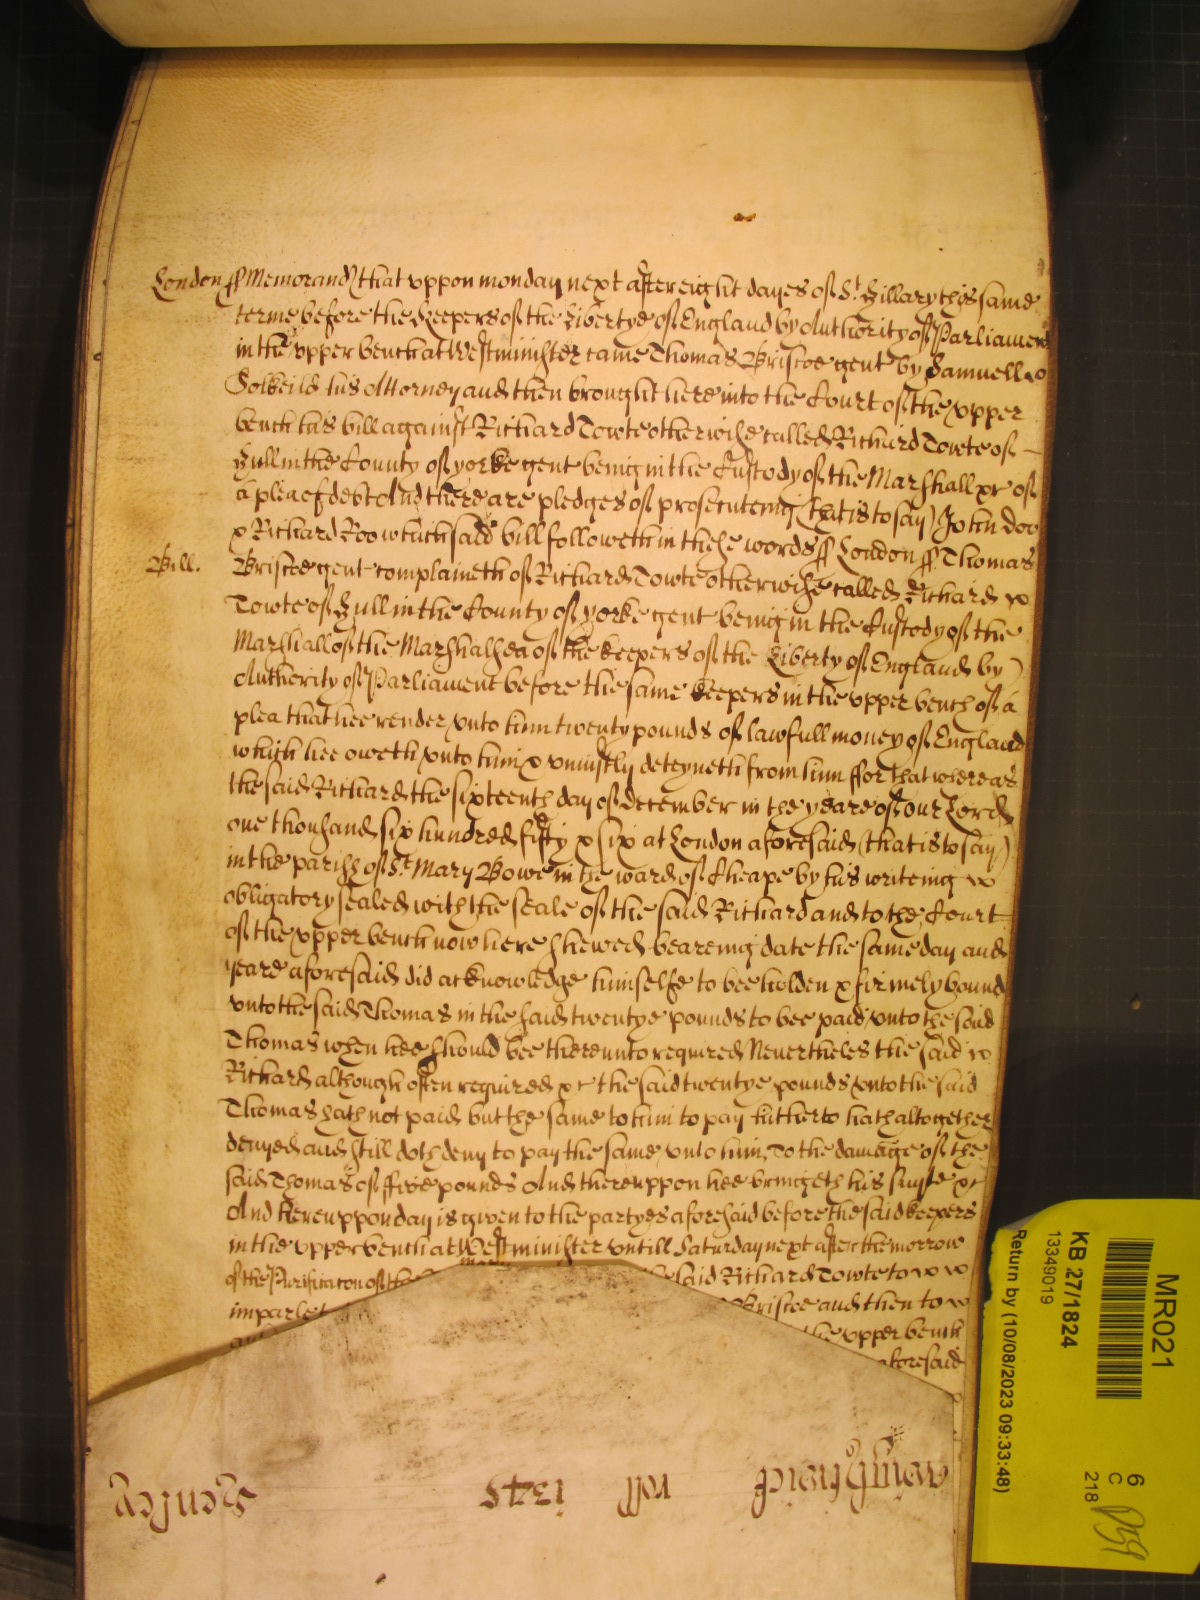 London ff Memorand that uppon monday next after eight dayes of St. Hillary this same
terme before the Keepers of the Libertye of England by Authority of Parliament
in the upper bench at Westminster came Thomas Briscoe gent by Samuell
his Attorney and then brought here into the Court of the upper
bench his bill against Richard Towte otherwise called Richard Towte of
Hull in the County of yorke gent being in the Custody of the Marshall &c of
a plea of debt And there are pledges of prosecuteing (that is to say) John Doo
& Richard Roo which said bill followeth in these words ff London ff Thomas
Bill. Briscoe gent complaineth of Richard Towte otherwise called Richard
Towte of Hull in the County of yorke gent being in the Custody of the
Marshall of the Marshalsea of the keepers of the Liberty of England by
Authority of Parliament before the same keepers in the upper bench of a
plea that hee render unto him twenty pounds of lawfull money of England
which hee oweth unto him & uniustly deteyneth from him ffor that whereas
the said Richard the sixteenth day of December in the yeare of our Lord
one thousand six hundred fifty & six at London aforesaid (that is to say)
in the parish of St. Mary Bowe in the ward of Cheape by his writeing
obligatory sealed with the seale of the said Richard and to the Court
of the upper bench now here shewed beareing date the same day and
yeare aforesaid did acknowledge himselfe to bee holden & firmely bound
unto the said Thomas in the said twentye pounds to bee paid unto the said
Thomas when hee should bee thereunto required Nevertheles the said
Richard although often required &c the said twentye pounds unto the said
Thomas hath not paid but the same to him to pay hitherto hath altogether
denyed and still doth deny to pay the same unto him, To the damage of the
said Thomas of ffive pounds And thereuppon hee bringeth his suyte &c
And hereuppon day is given to the partyes aforesaid before the said keepers
in the upper bench at Westminster untill Saturday next after the morrow
of the Purificaton of the said Richard Towte to
imparle Briscoe and then to
the upper bench
aforesaid
roll 1345
MR021
KB 27/1824
13349019
Return by (10/08/2023 09:33:48)
6
C
218